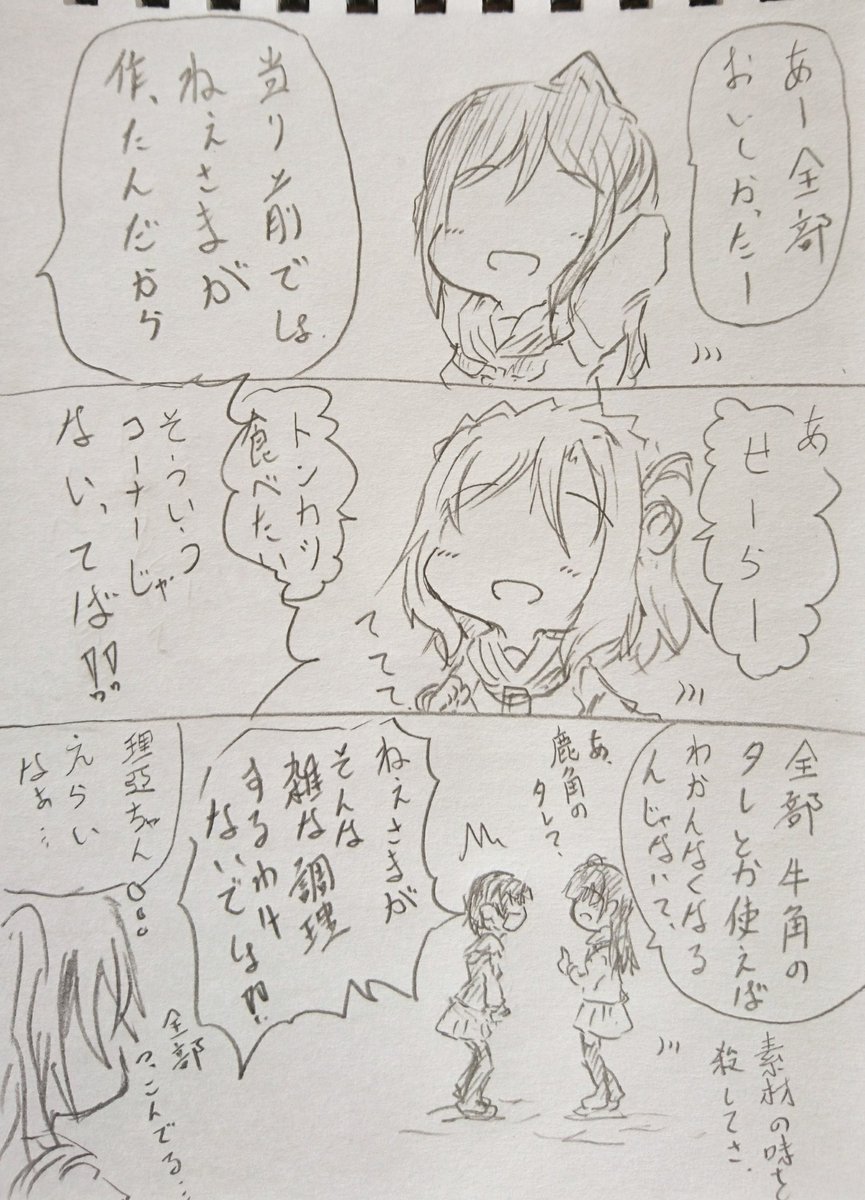 あー全部
おいしかったー
当り前でしょ
ねぇさまが
作ったんだから
あ
せーらー
トンカツ
食べたい
ててて
そーいうつ
コーナーじゃ
ないってば!!
全部牛角の
タレとか使えば
わかんなくなる
んじゃないて、
素材の味を
殺してさ、
あ、
鹿角の
タレて、
ねぇさまが
そんな
雑な調理
するわけ
ないでしょ!!
理亞ちゃん
えらい
なぁ…
全部
つっこんでる…